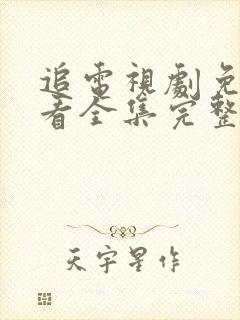 追電視劇免
看全集完整
天宇星作